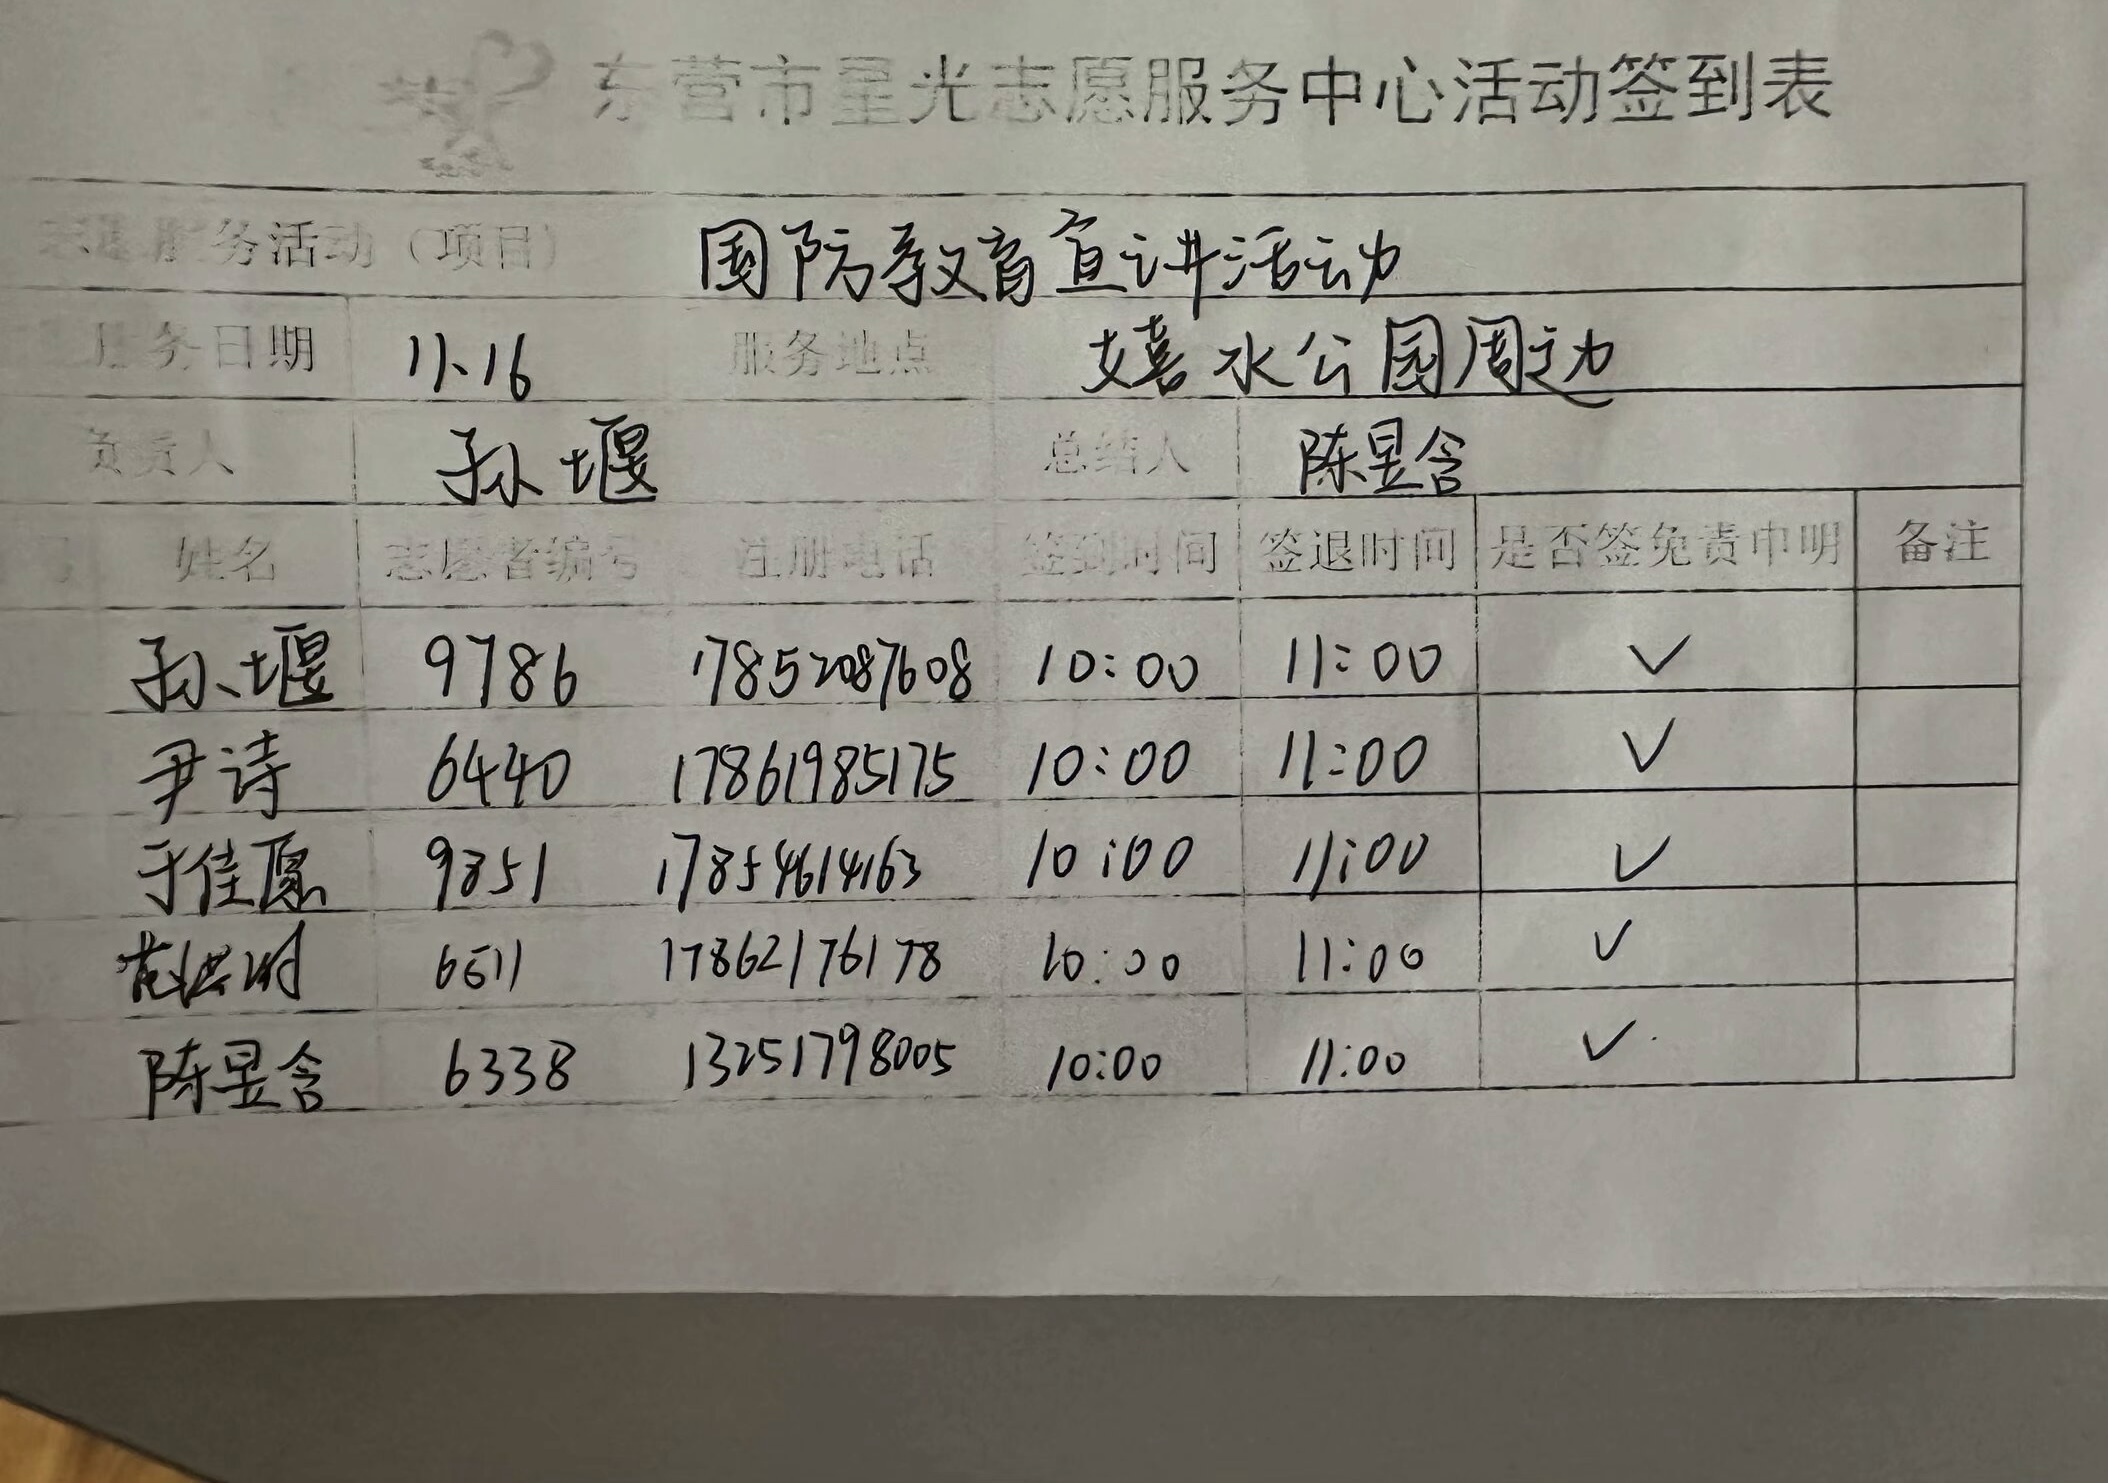 东营市星光志愿服务中心活动签到表
志愿服务活动（项目） 国防教育宣讲活动
服务日期 11.16 服务地点 嬉水公园周边
负责人 孙堰 总结人 陈昱含
号 姓名 志愿者编号 注册电话 签到时间 签退时间 是否签免责申明 备注
孙堰 9786 17852087608 10:00 11:00 ✓
尹诗 6440 17861985175 10:00 11:00 ✓
于佳愿 9351 17854614163 10:00 11:00 ✓
6511 17862176178 10:00 11:00 ✓
陈昱含 6338 13251798005 10:00 11:00 ✓